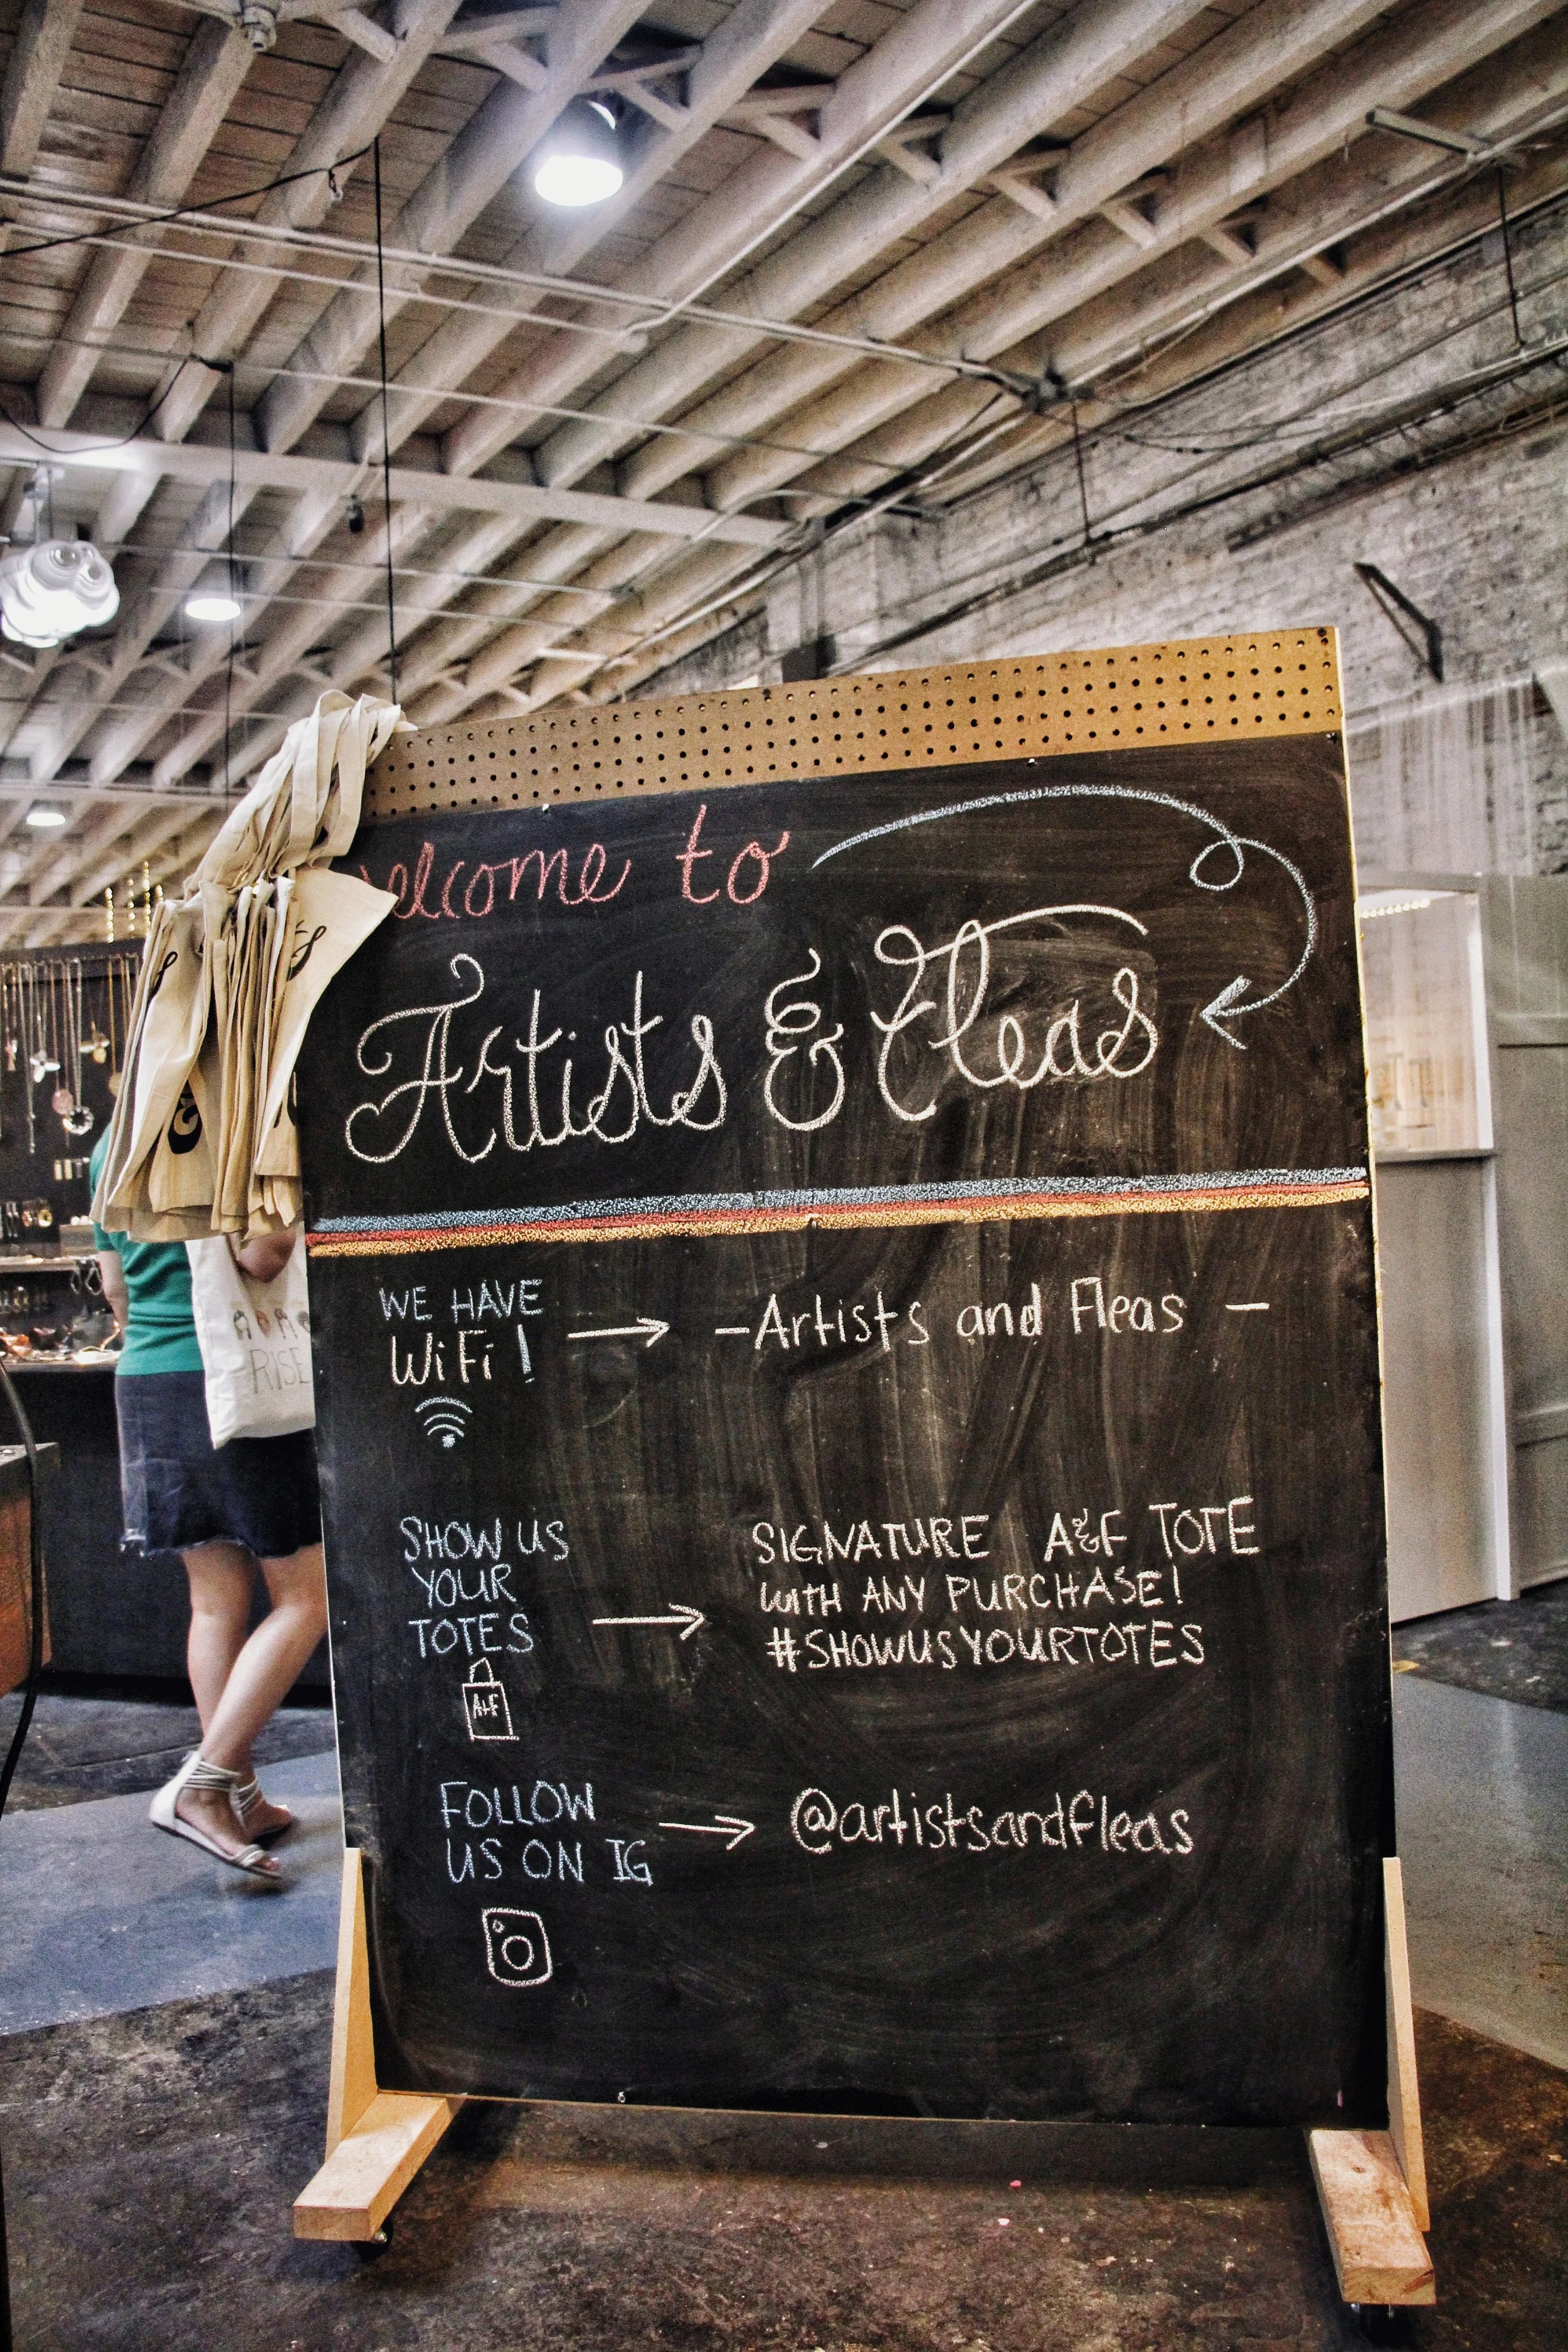 welcome to
Artists & Fleas
WE HAVE
WiFi!
—Artists and Fleas —
SHOW US
YOUR
TOTES
A&F
SIGNATURE A&F TOTE
WITH ANY PURCHASE!
#SHOWUSYOURTOTES
FOLLOW
US ON IG
@artistsandfleas
&
RISE